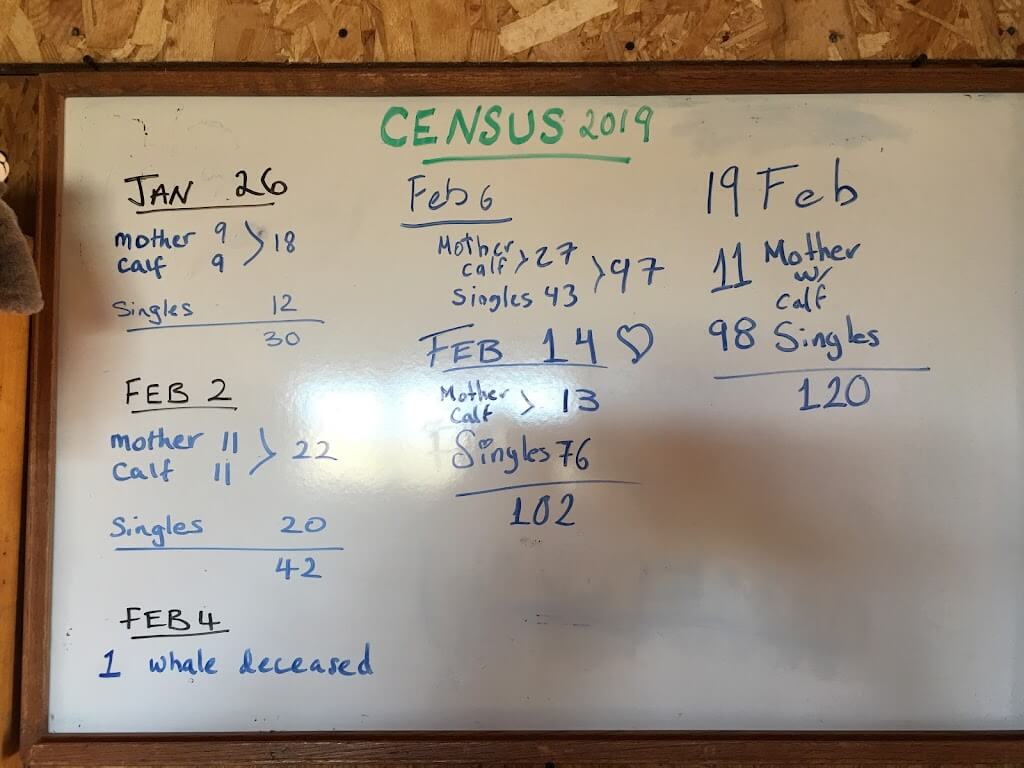 CENSUS 2019
JAN 26
mother 9 > 18
calf 9
Singles 12
30
FEB 2
mother 11 > 22
Calf 11
Singles 20
42
FEB 4
1 whale deceased
Feb 6
Mother > 27 > 97
calf
Singles 43
FEB 14 ♡
Mother > 13
Calf
Singles 76
102
19 Feb
11 Mother
w/
calf
98 Singles
120